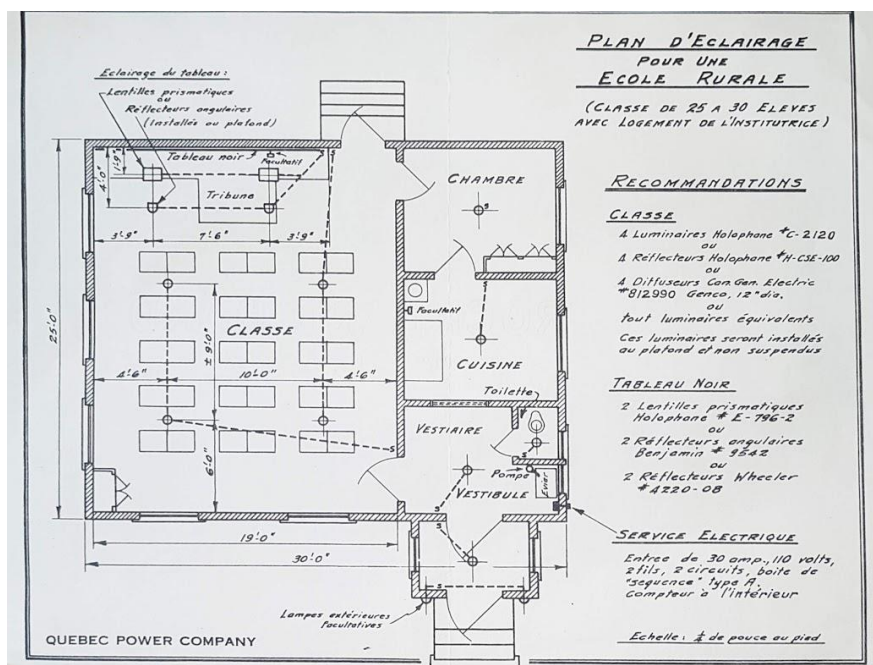 PLAN D'ECLAIRAGE
POUR UNE
ECOLE RURALE
(CLASSE DE 25 A 30 ELEVES
AVEC LOGEMENT DE L'INSTITUTRICE)
RECOMMANDATIONS
CLASSE
4 Luminaires Holophane #C-2120
ou
4 Réflecteurs Holophane #H-CSE-100
ou
4 Diffuseurs Can. Gen. Electric
#812990 Genco, 12" dia.
ou
tout luminaires équivalents
Ces luminaires seront installés
au plafond et non suspendus
TABLEAU NOIR
2 Lentilles prismatiques
Holophane # E-796-2
ou
2 Réflecteurs angulaires
Benjamin # 9542
ou
2 Réflecteurs Wheeler
#4220-08
SERVICE ELECTRIQUE
Entrée de 30 amp., 110 volts,
2 fils, 2 circuits, boite de
"sequence" type A.
Compteur à l'intérieur
Echelle: ¼ de pouce au pied
Eclairage du tableau:
Lentilles prismatiques
ou
Réflecteurs angulaires
(Installés au plafond)
Tableau noir
Facultatif
S
1'-9"
4'-0"
Tribune
3'-9"
7'-6"
3'-9"
25'-0"
CLASSE
± 9'-0"
4'-6"
10'-0"
4'-6"
6'-0"
S
CHAMBRE
S
S
Facultatif
CUISINE
Toilette
VESTIAIRE
S
Pompe
Evier
S
VESTIBULE
S
S
S
19'-0"
30'-0"
Lampes extérieures
Facultatives
QUEBEC POWER COMPANY